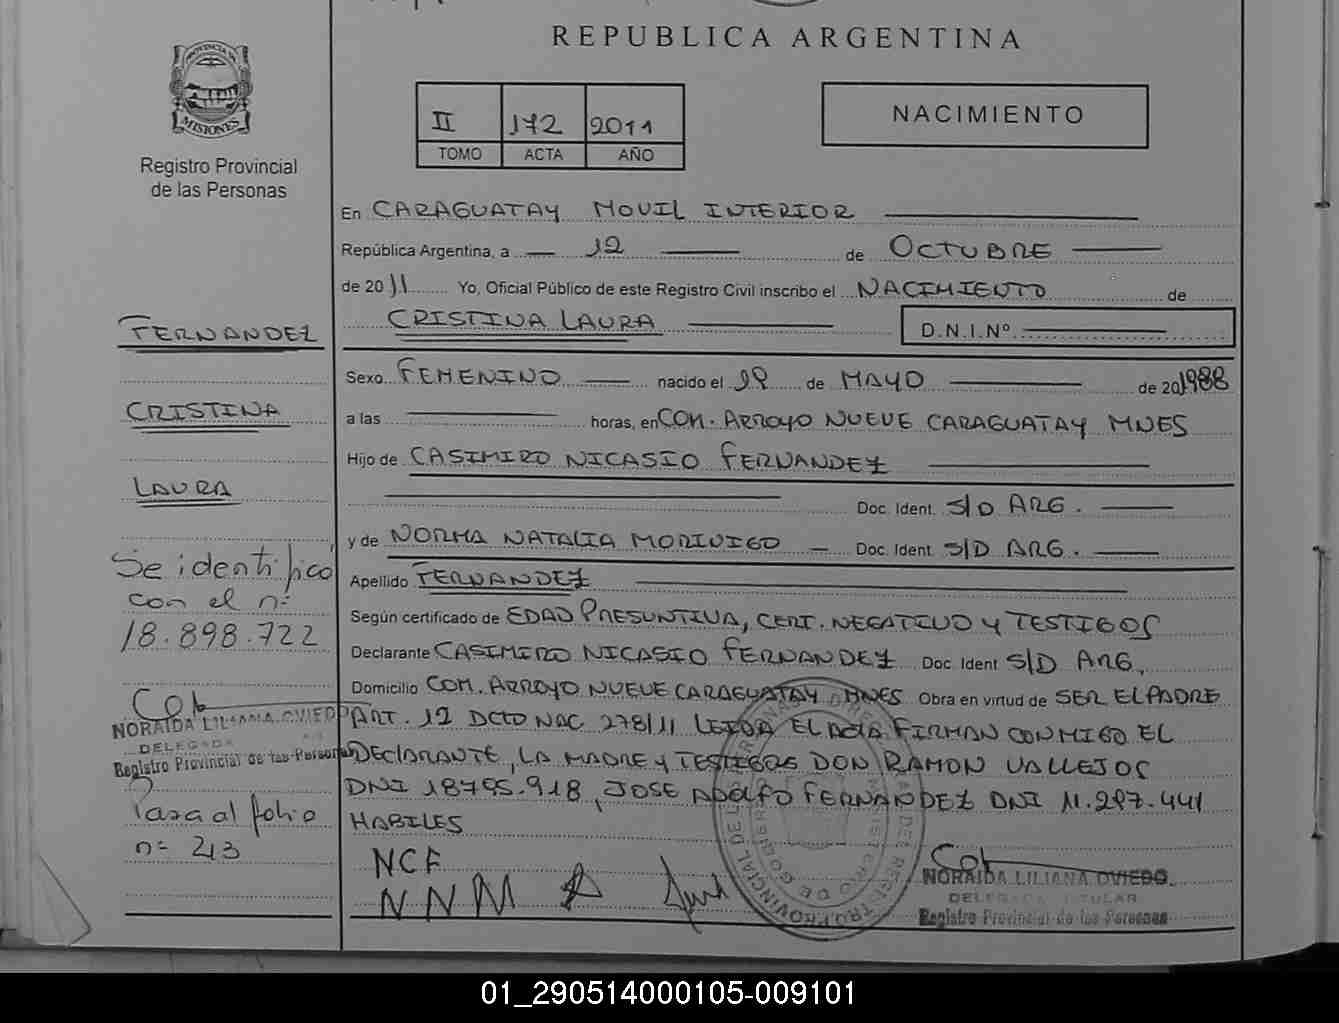 REPUBLICA ARGENTINA
PROVINCIA DE
MISIONES
Registro Provincial
de las Personas
II 172 2011
TOMO ACTA AÑO
NACIMIENTO
En CARAGUATAY MOVIL INTERIOR
República Argentina, a 12 de OCTUBRE
de 2011 Yo, Oficial Público de este Registro Civil inscribo el NACIMIENTO de
CRISTINA LAURA D.N.I.Nº
Sexo FEMENINO nacido el 19 de MAYO de 201988
a las horas, en COM. ARROYO NUEVE CARAGUATAY MNES
Hijo de CASIMIRO NICASIO FERNANDEZ
Doc. Ident. S/D ARG.
y de NORMA NATALIA MORINIGO Doc. Ident. S/D ARG.
Apellido FERNANDEZ
Según certificado de EDAD PRESUNTIVA, CERT. NEGATIVO Y TESTIGOS
Declarante CASIMIRO NICASIO FERNANDEZ Doc. Ident S/D ARG.
Domicilio COM. ARROYO NUEVE CARAGUATAY MNES Obra en virtud de SER EL PADRE
ART. 12 DCTO NAC 278/11 LEIDA EL ACTA FIRMAN CONMIGO EL
DECLARANTE, LA MADRE Y TESTIGOS DON RAMON VALLEJOS
DNI 18795.918, JOSE ADOLFO FERNANDEZ DNI 11.297.441
HABILES
NCF
NNM
NORAIDA LILIANA OVIEDO
DELEGADA TITULAR
Registro Provincial de las Personas
FERNANDEZ
CRISTINA
LAURA
Se identificó
con el nº
18.898.722
NORAIDA LILIANA OVIEDO
DELEGADA
Registro Provincial de las Personas
Pasa al folio
nº 213
01_290514000105-009101